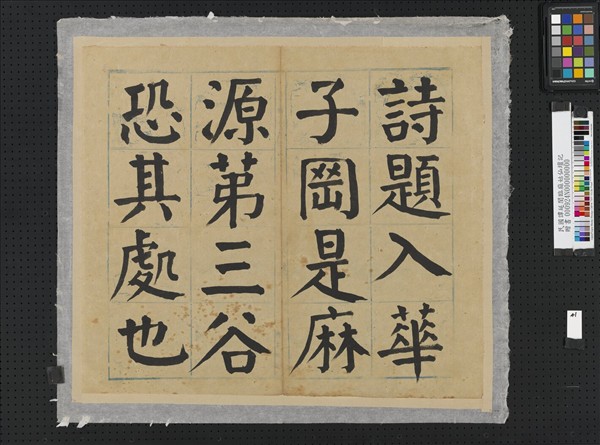 詩題入華
子岡是麻
源苐三谷
恐其處也